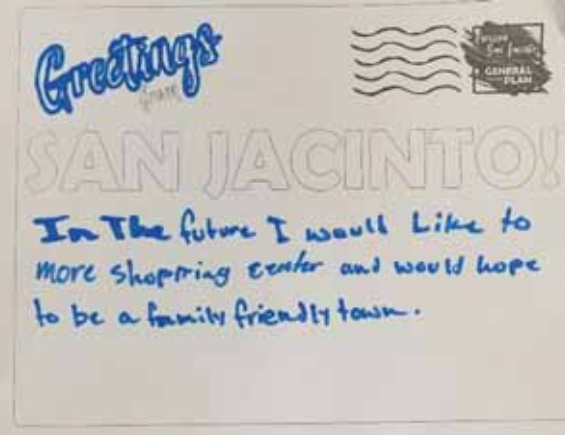 Greetings
from
SAN JACINTO!
GENERAL
PLAN
In The future I would Like to
more shopping center and would hope
to be a family friendly town.